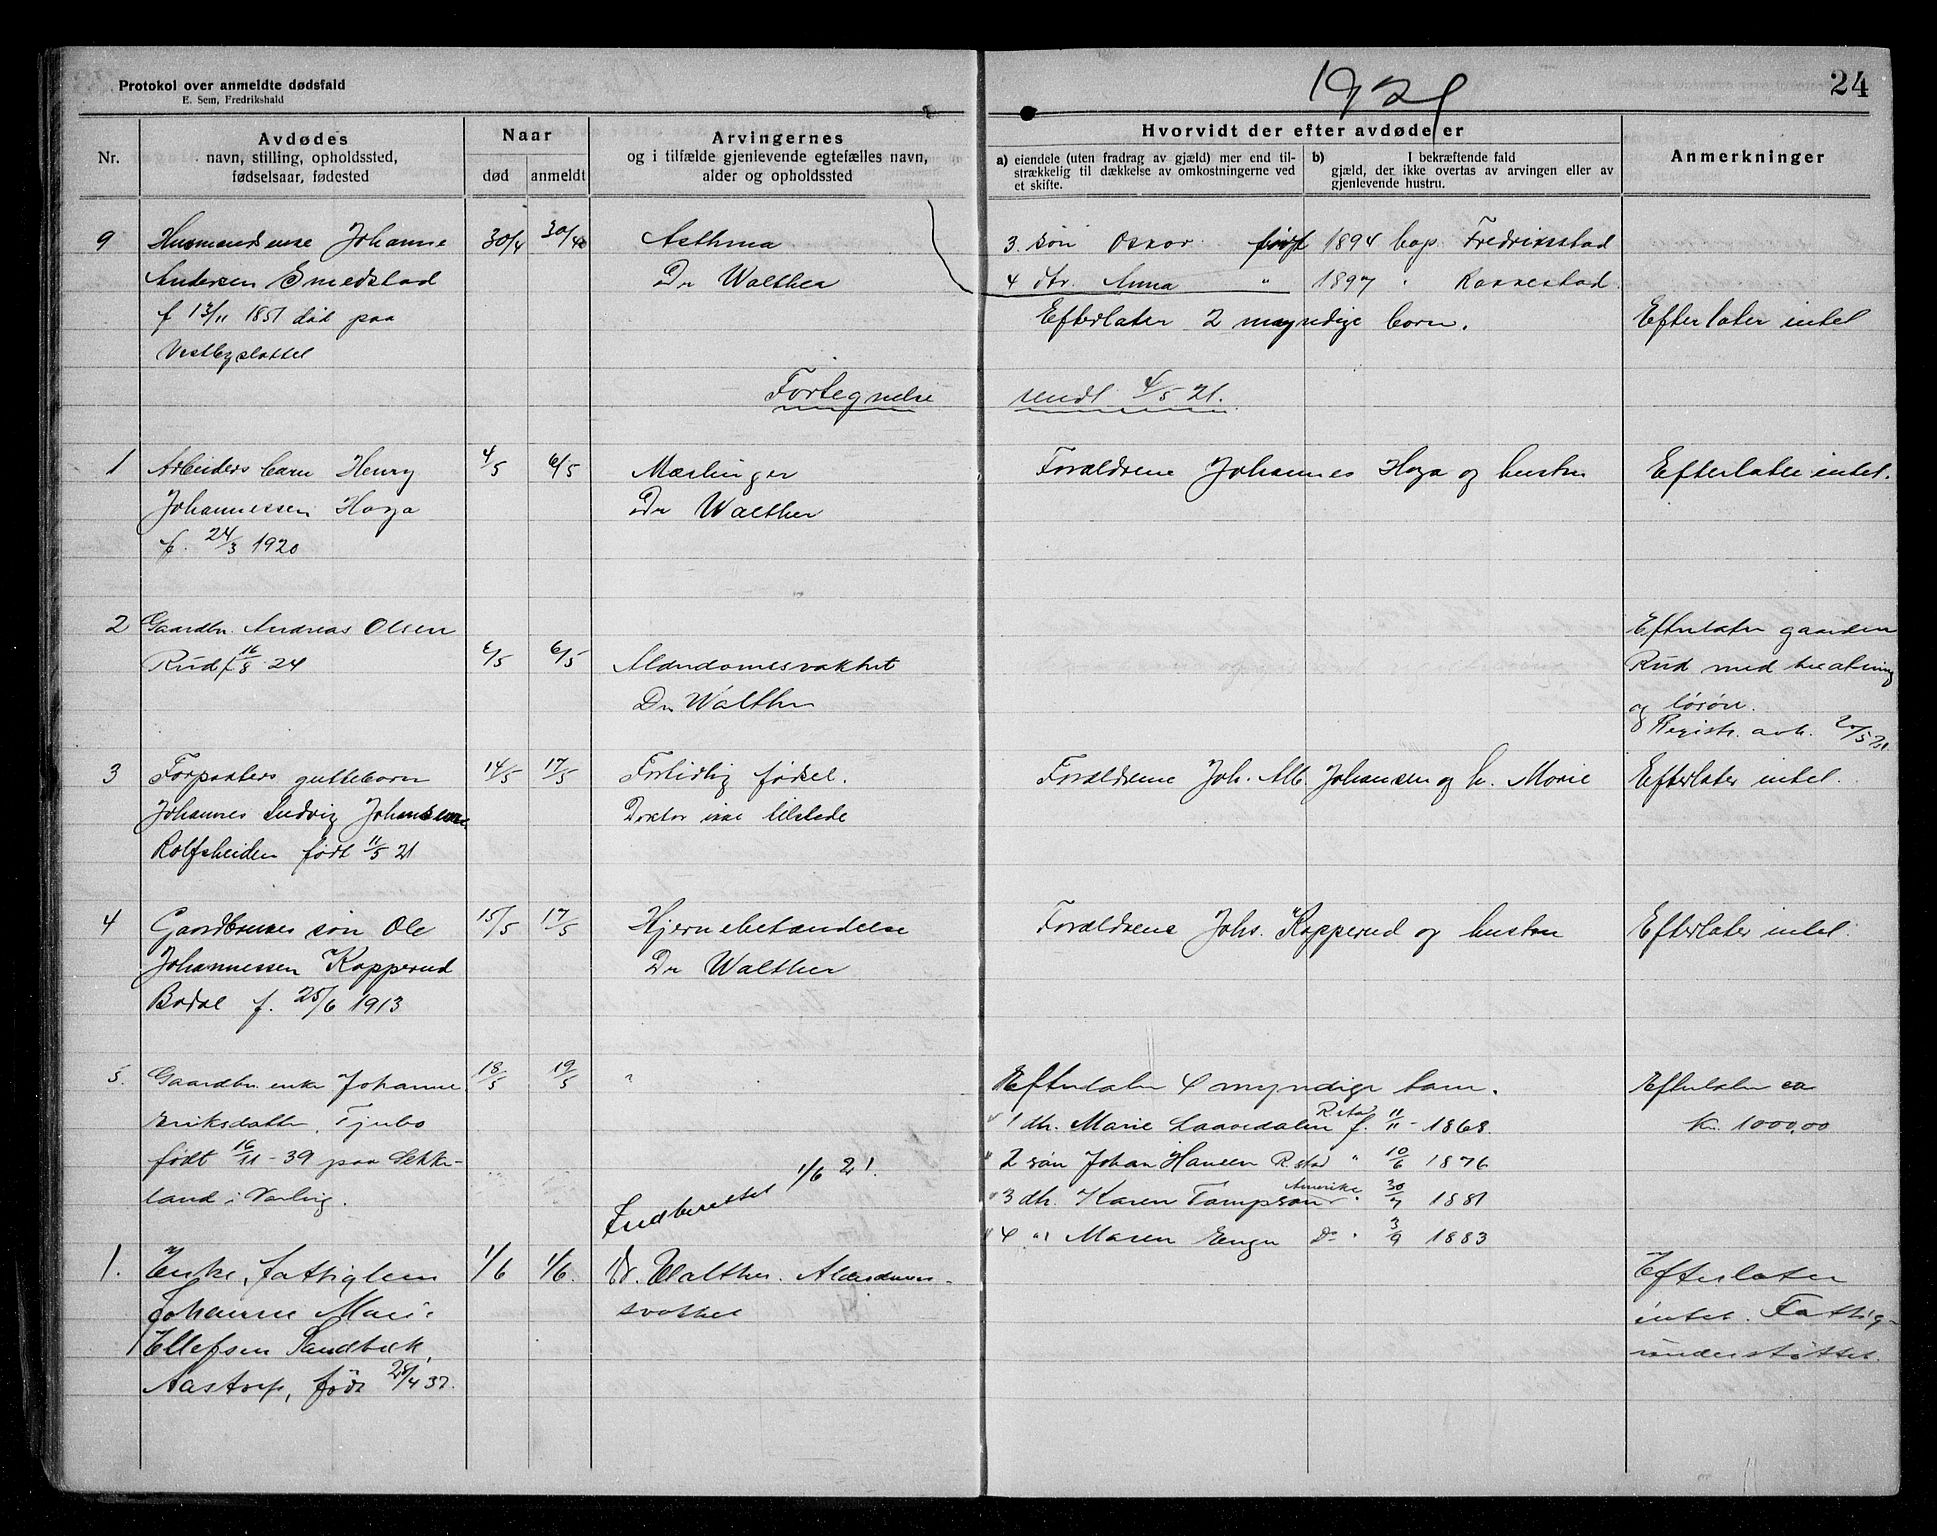 Protokol over anmeldte dødsfald
E. Sem, Fredrikshald
1921
24
Nr.
Avdødes
navn, stilling, opholdssted,
fødselsaar, fødested
Naar
død
anmeldt
Arvingernes
og i tilfælde gjenlevende egtefælles navn,
alder og opholdssted
Hvorvidt der efter avdøde er
a) eiendele (uten fradrag av gjæld) mer end til-
strækkelig til dækkelse av omkostningerne ved
et skifte.
b) I bekræftende fald
gjæld, der ikke overtas av arvingen eller av
gjenlevende hustru.
Anmerkninger
9 Husmandsenke Johanne 30/4 30/4 Asthma 3. søn Oskar født 1894 bop. Fredriksstad
Andersen Smedstad Dr Walther 4 dtr. Anna " 1897 " Rakkestad
f 13/11 1851 død paa Efterlater 2 myndige børn. Efterlater intet
Vestbyslottet
Fortegnelse sendt 4/5 21.
1 Arbeiders barn Henry 4/5 6/5 Mæslinger Forældrene Johannes Haga og hustru Efterlater intet.
Johannessen Haga Dr Walther
f. 24/3 1920
2 Gaardbr. Andreas Olsen Efterlater gaarden
Rud f 16/8 24 6/5 6/5 Alderdomssvakhet Rud med besætning
Dr Walther og løsøre.
Registr. avh. 20/5 21.
3 Forpakters guttebarn 14/5 17/5 Fortidlig fødsel. Forældrene Joh. Alb. Johansen og h. Marie Efterlater intet.
Johannes Ludvig Johansen Doktor ikke tilstede
Rolfsheiden født 11/5 21
4 Gaardbrukers søn Ole 15/5 17/5 Hjernebetændelse Forældrene Johs. Kopperud og hustru Efterlater intet.
Johannessen Kopperud Dr Walther
Bodal f. 25/6 1913
5. Gaardbr. enke Johanne 18/5 19/5 " Efterlater 4 myndige barn. Efterlater ca
Eriksdatter, Tjubo " 1 dtr. Marie Laavedalen R.stad f. 11/11 - 1868. kr. 1000,00
født 16/11 - 39 paa " 2 søn Johan Hansen R.stad " 10/6 1876
land i Varteig. Indberettet 1/6 21. " 3 dtr. Karen Tompson Amerika " 30/7 1881
" 4 " Maren Engn Do " 3/9 1883
1. Enke, fattiglem 1/6 1/6. Dr. Walther. Alderdoms- Efterlater
Johanne Marie svakhet intet. Fattig-
Ellefsen Sandbæk, understøttet.
Aastorp, født 28/4 37.